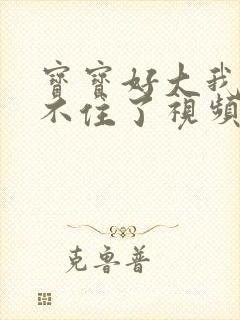 寶寶好大我
不住了視頻
克魯普